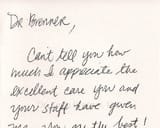 Dr Bronner,
Can't tell you how
much I appreciate the
excellent care you and
your staff have given
me. You are the best!